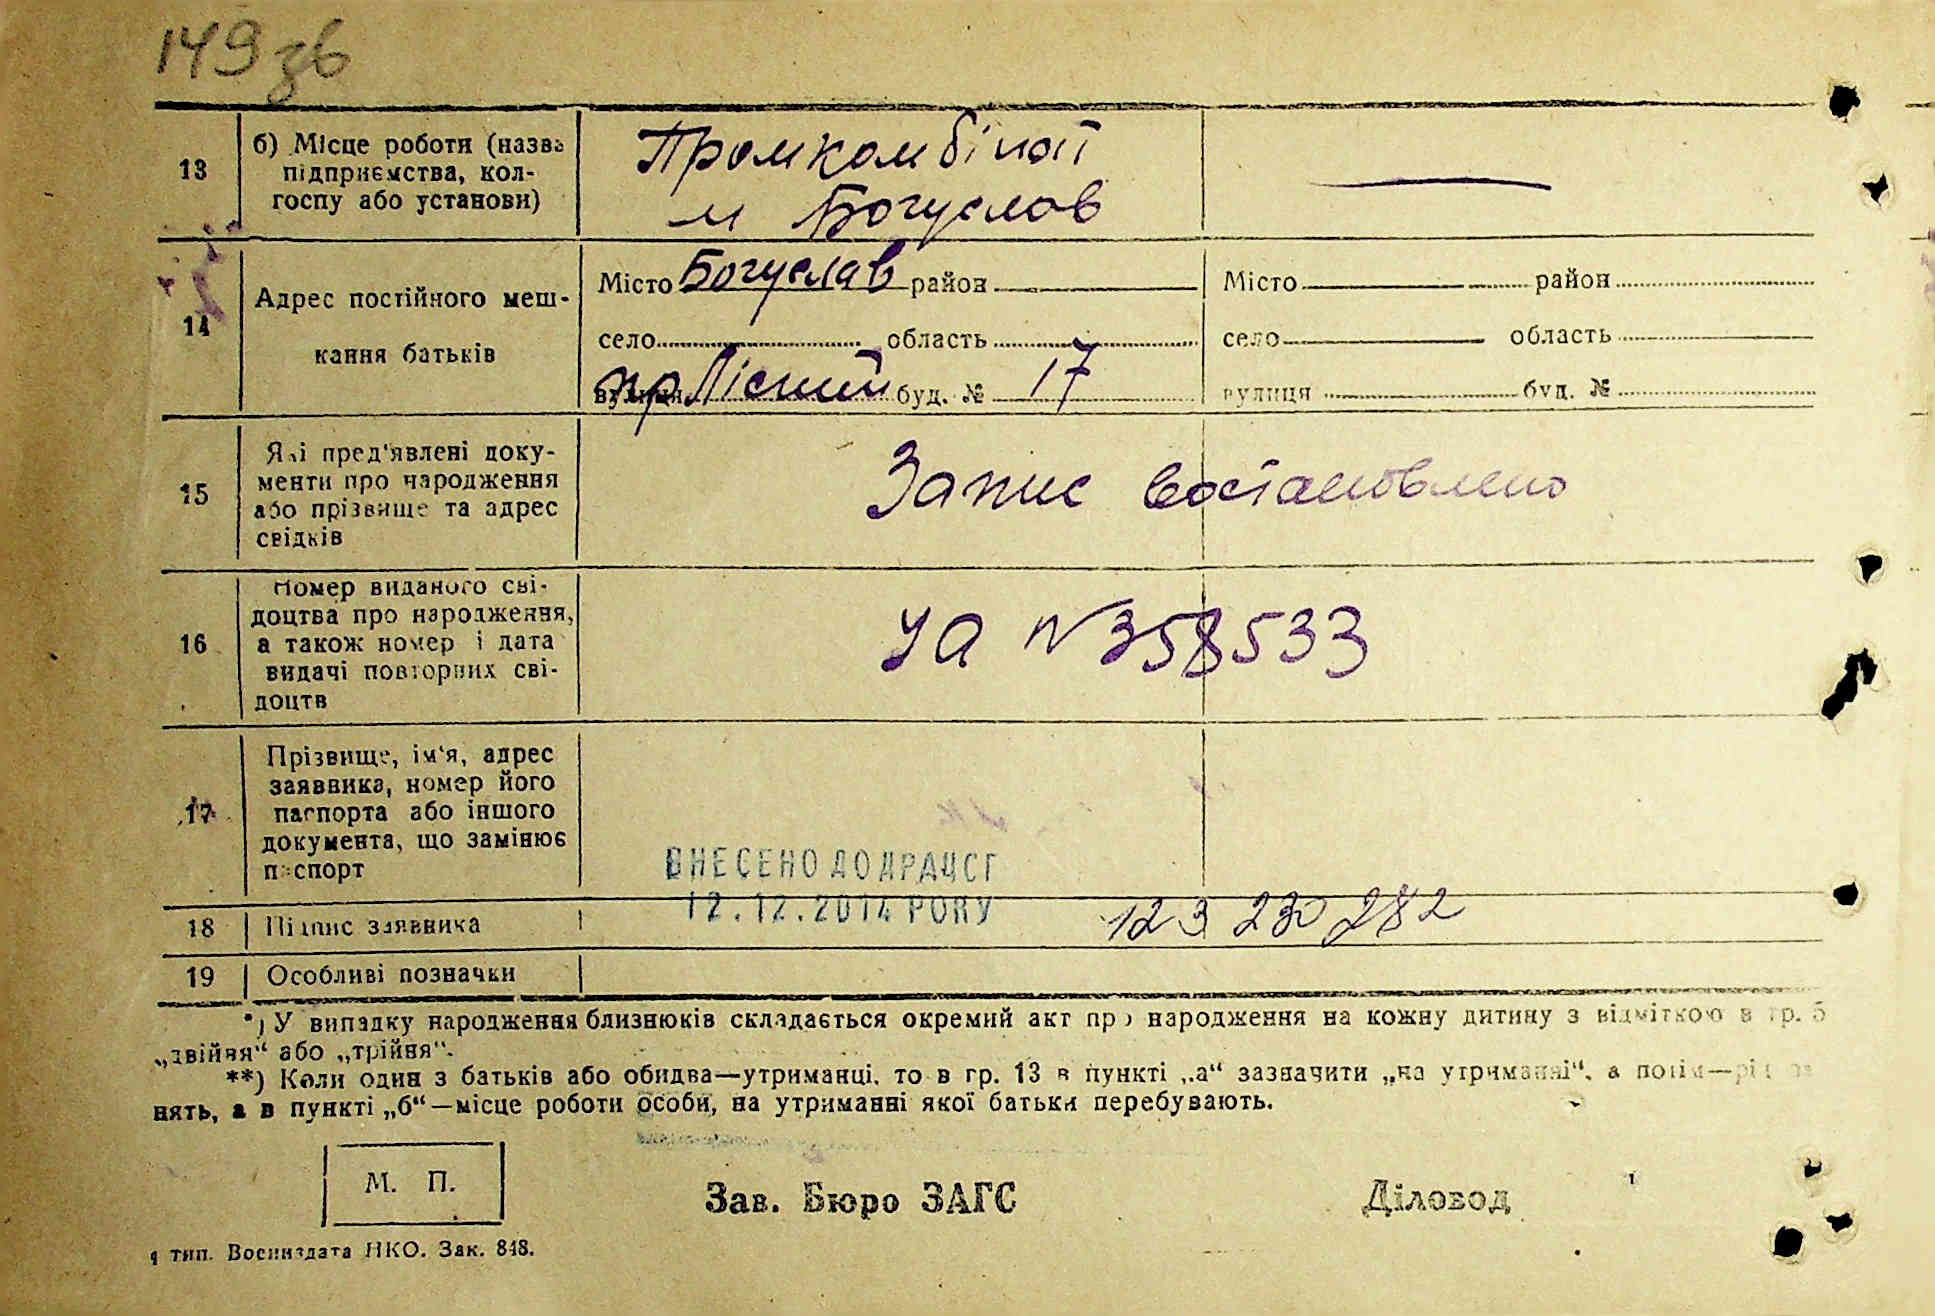 149 зв
13
б) Місце роботи (назва
підприємства, кол-
госпу або установи)
Промкомбінат
м Богуслав
14
Адрес постійного меш-
кання батьків
Місто Богуслав район
село область
вулиця пр Лісний буд. № 17
Місто район
село область
вулиця буд. №
15
Які пред'явлені доку-
менти про народження
або прізвище та адрес
свідків
Запис востановлено
16
Номер виданого сві-
доцтва про народження,
а також номер і дата
видачі повторних сві-
доцтв
УА №358533
17
Прізвище, ім'я, адрес
заявника, номер його
паспорта або іншого
документа, що замінює
паспорт
ВНЕСЕНО ДО ДРАЦСГ
12.12.2014 РОКУ
18
Підпис заявника
123 230 282
19
Особливі позначки
*) У випадку народження близнюків складається окремий акт про народження на кожну дитину з відміткою в гр. 5
„двійня“ або „трійня“.
**) Коли один з батьків або обидва—утриманці, то в гр. 13 в пункті „а“ зазначити „на утриманні“, а потім—рід за
нять, а в пункті „б“—місце роботи особи, на утриманні якої батьки перебувають.
М. П.
Зав. Бюро ЗАГС
Діловод
тип. Воениздата НКО. Зак. 848.